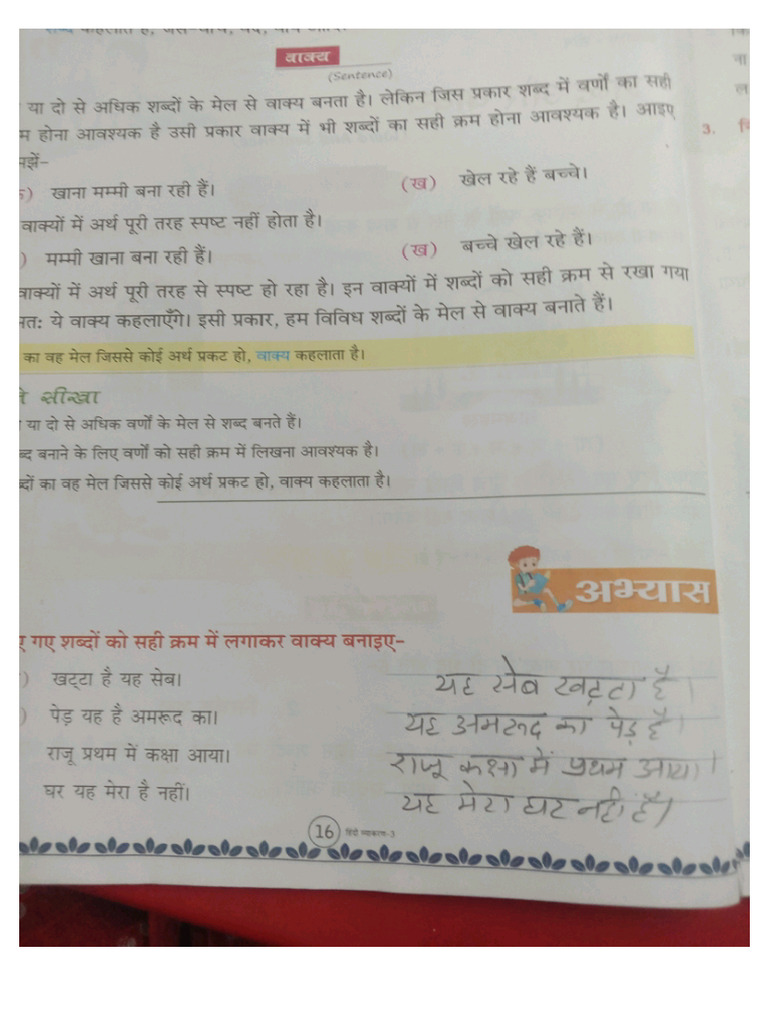 वाक्य
(Sentence)
या दो से अधिक शब्दों के मेल से वाक्य बनता है। लेकिन जिस प्रकार शब्द में वर्णों का सही
म होना आवश्यक है उसी प्रकार वाक्य में भी शब्दों का सही क्रम होना आवश्यक है। आइए
मझें–
खाना मम्मी बना रही हैं।
(ख) खेल रहे हैं बच्चे।
वाक्यों में अर्थ पूरी तरह स्पष्ट नहीं होता है।
) मम्मी खाना बना रही हैं।
(ख) बच्चे खेल रहे हैं।
वाक्यों में अर्थ पूरी तरह से स्पष्ट हो रहा है। इन वाक्यों में शब्दों को सही क्रम से रखा गया
अत: ये वाक्य कहलाएँगे। इसी प्रकार, हम विविध शब्दों के मेल से वाक्य बनाते हैं।
का वह मेल जिससे कोई अर्थ प्रकट हो, वाक्य कहलाता है।
ने सीखा
या दो से अधिक वर्णों के मेल से शब्द बनते हैं।
ब्द बनाने के लिए वर्णों को सही क्रम में लिखना आवश्यक है।
ब्दों का वह मेल जिससे कोई अर्थ प्रकट हो, वाक्य कहलाता है।
अभ्यास
ए गए शब्दों को सही क्रम में लगाकर वाक्य बनाइए–
) खट्टा है यह सेब। यह सेब खट्टा है।
) पेड़ यह है अमरूद का। यह अमरूद का पेड़ है।
राजू प्रथम में कक्षा आया। राजू कक्षा में प्रथम आया।
घर यह मेरा है नहीं। यह मेरा घर नहीं है।
16 हिंदी व्याकरण-3
3.